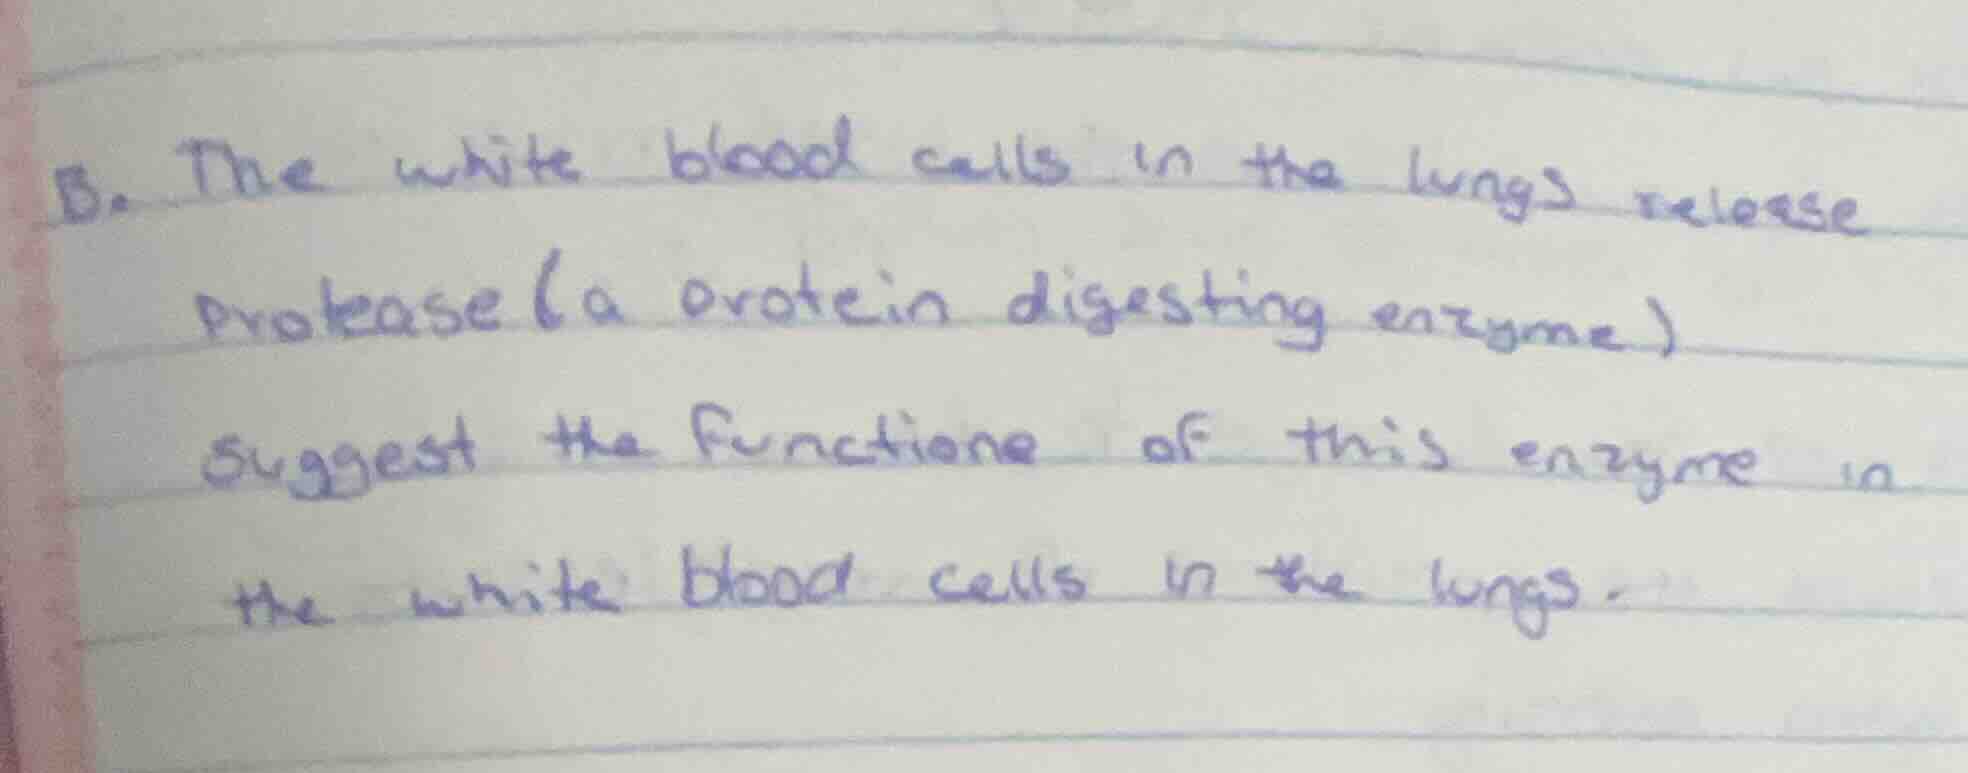 B. The white blood cells in the lungs release
protease (a protein digesting enzyme)
suggest the functione of this enzyme in
the white blood cells in the lungs.